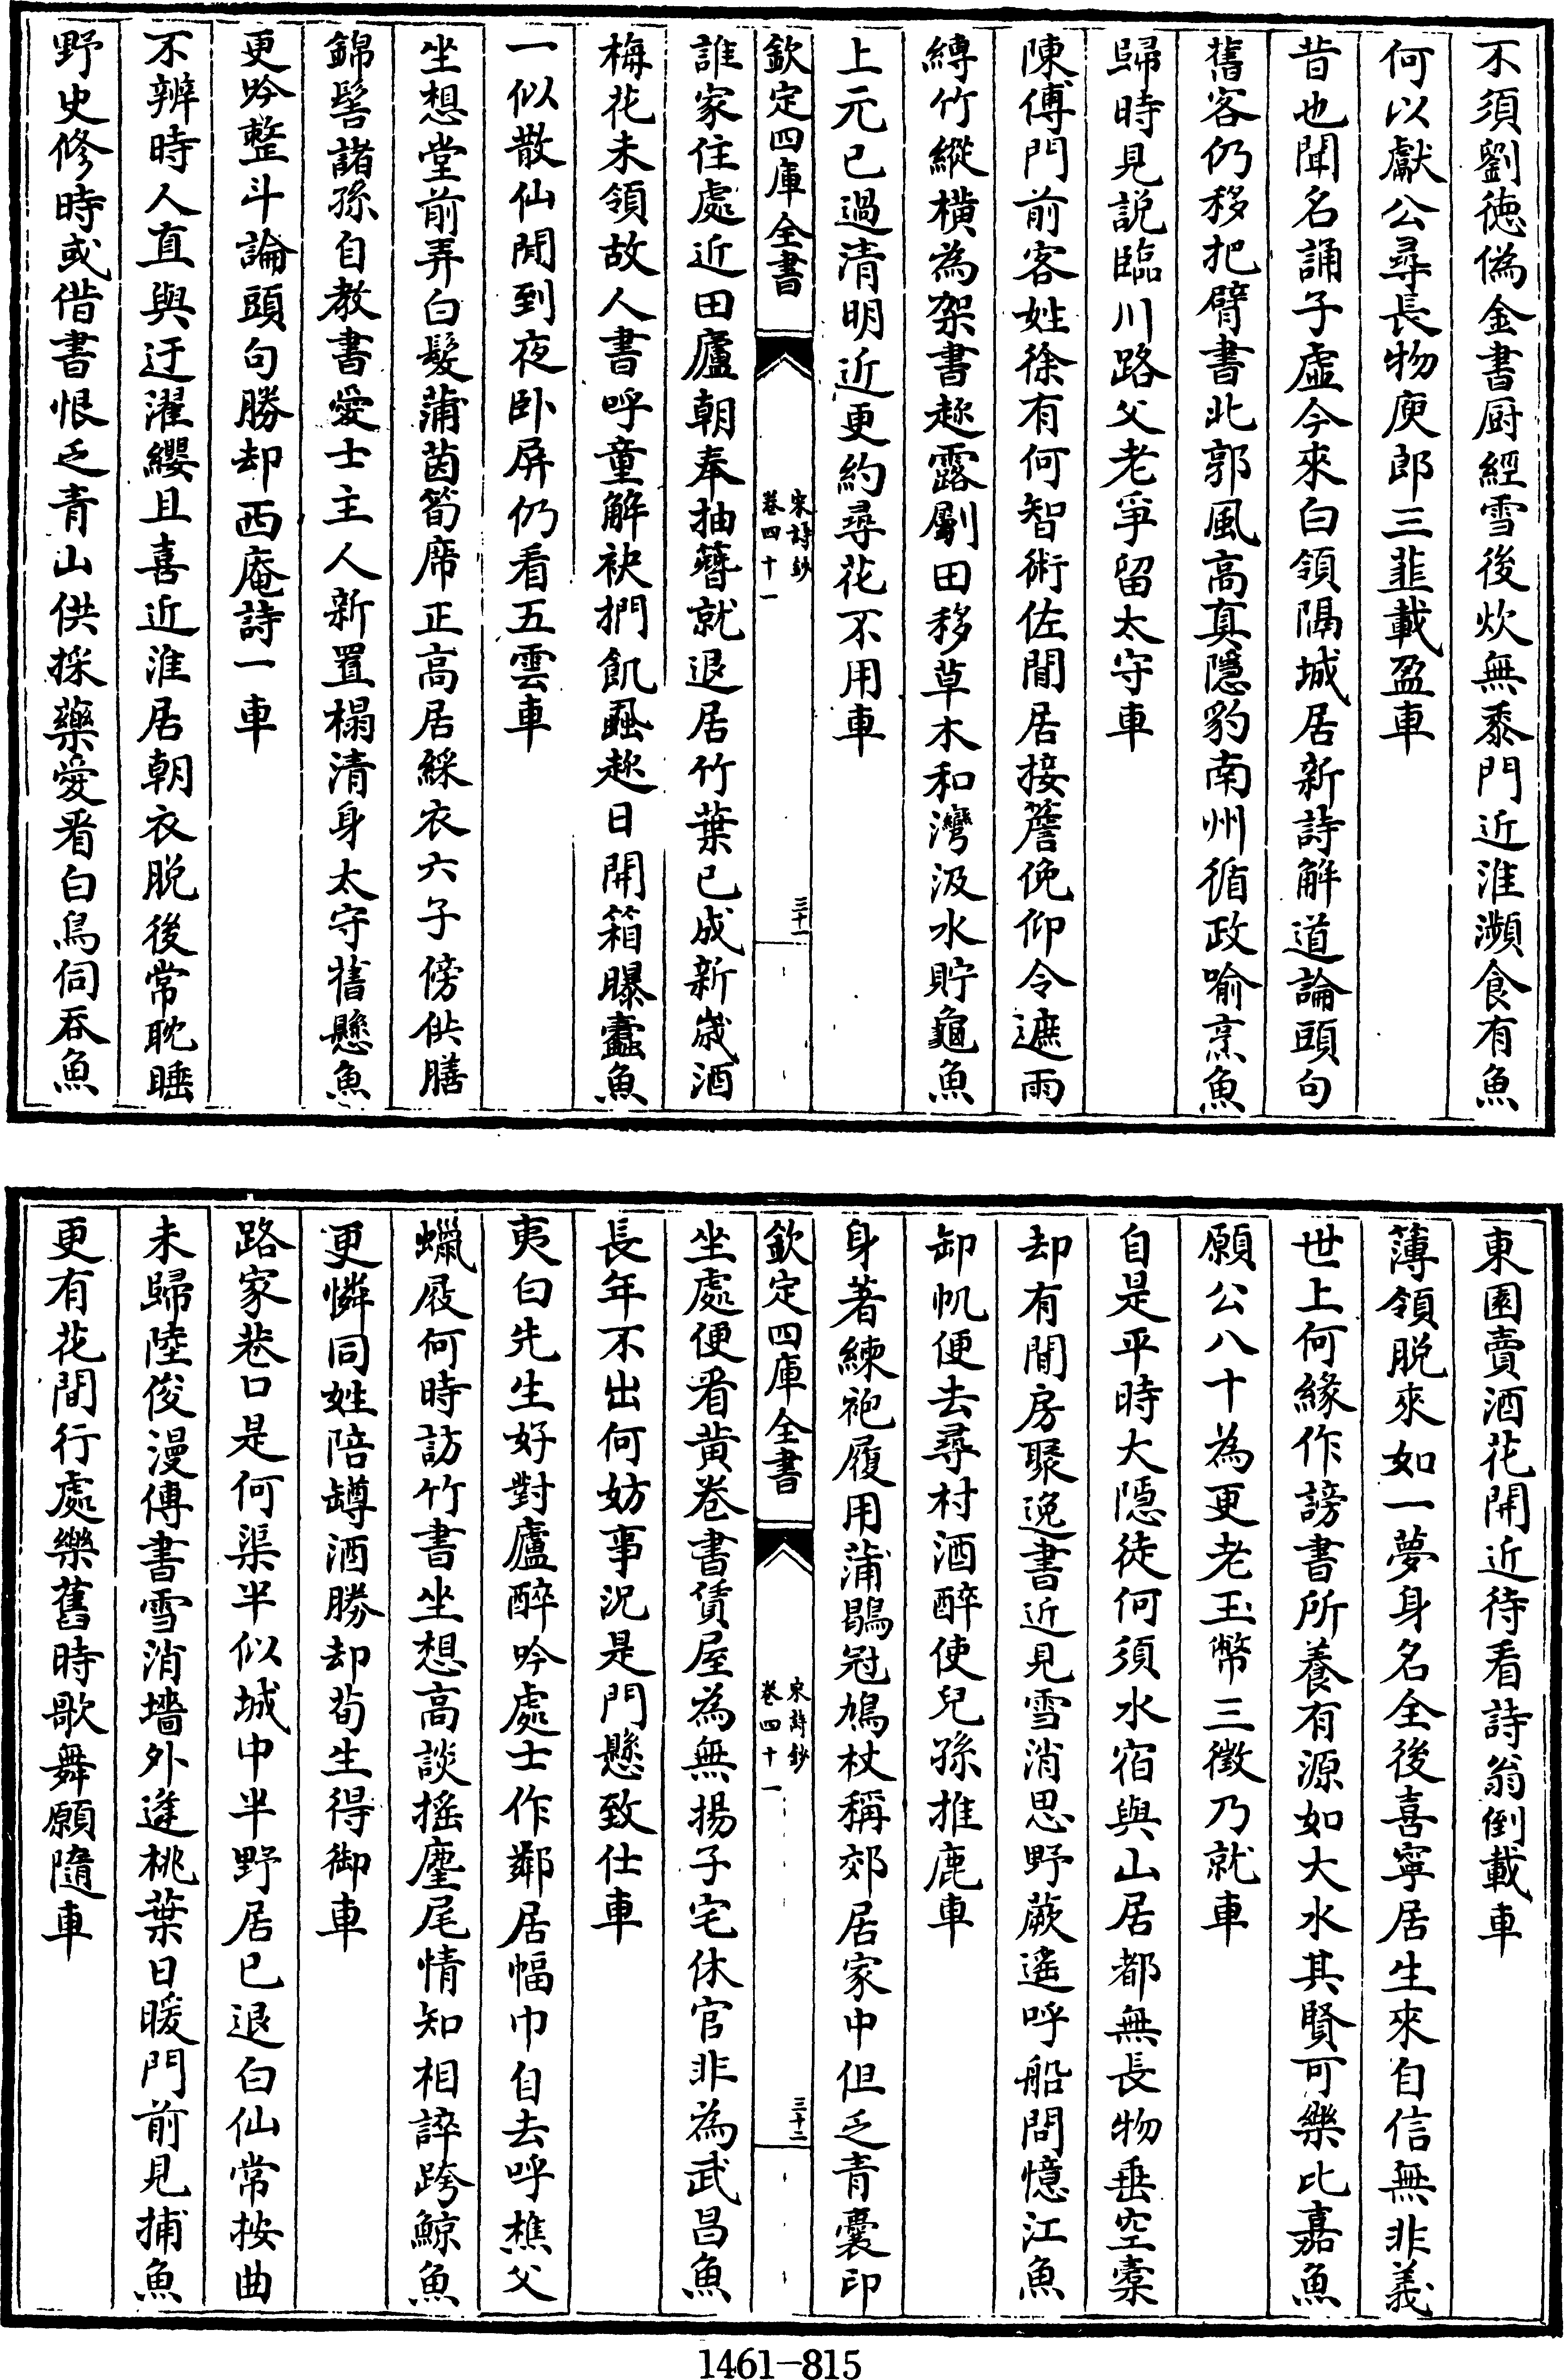 不須劉徳偽金書厨經雪後炊無黍門近淮瀕食有魚
何以獻公尋長物庾郎三韮載盈車
昔也聞名誦子虛今來白領隔城居新詩解道論頭句
舊客仍移把臂書北郭風高真隱豹南州循政喻烹魚
歸時見説臨川路父老爭留太守車
陳傅門前客姓徐有何智術佐閒居接簷俛仰令遮雨
縛竹縱橫為架書趂露劚田移草木和灣汲水貯龜魚
上元已過清明近更約尋花不用車
欽定四庫全書
宋詩鈔
卷四十一
三十一
誰家住處近田廬朝奉抽簪就退居竹葉已成新歲酒
梅花未領故人書呼童解袂捫飢蝨趂日開箱曝蠹魚
一似散仙閒到夜卧屏仍看五雲車
坐想堂前弄白髮蒲茵筍席正高居綵衣六子傍供膳
錦髻諸孫自教書愛士主人新置榻清身太守舊懸魚
更吟整斗論頭句勝却西庵詩一車
不辨時人直與迂濯纓且喜近淮居朝衣脱後常耽睡
野史修時或借書恨乏青山供採藥愛看白鳥伺吞魚
東園賣酒花開近待看詩翁倒載車
薄領脱來如一夢身名全後喜寧居生來自信無非義
世上何緣作謗書所養有源如大水其賢可樂比嘉魚
願公八十為更老玉幣三徵乃就車
自是平時大隱徒何須水宿與山居都無長物垂空橐
却有閒房聚逸書近見雪消思野蕨遙呼船問憶江魚
卸帆便去尋村酒醉使兒孫推鹿車
身著練袍履用蒲鶡冠鳩杖稱郊居家中但乏青囊印
欽定四庫全書
宋詩鈔
卷四十一
三十二
坐處便看黄卷書賃屋為無揚子宅休官非為武昌魚
長年不出何妨事況是門懸致仕車
夷白先生好對廬醉吟處士作鄰居幅巾自去呼樵父
蠟屐何時訪竹書坐想高談搖麈尾情知相誶跨鯨魚
更憐同姓陪罇酒勝却荀生得御車
路家巷口是何渠半似城中半野居已退白仙常按曲
未歸陸俊漫傳書雪消墻外逢桃葉日暖門前見捕魚
更有花間行處樂舊時歌舞願隨車
1461-815